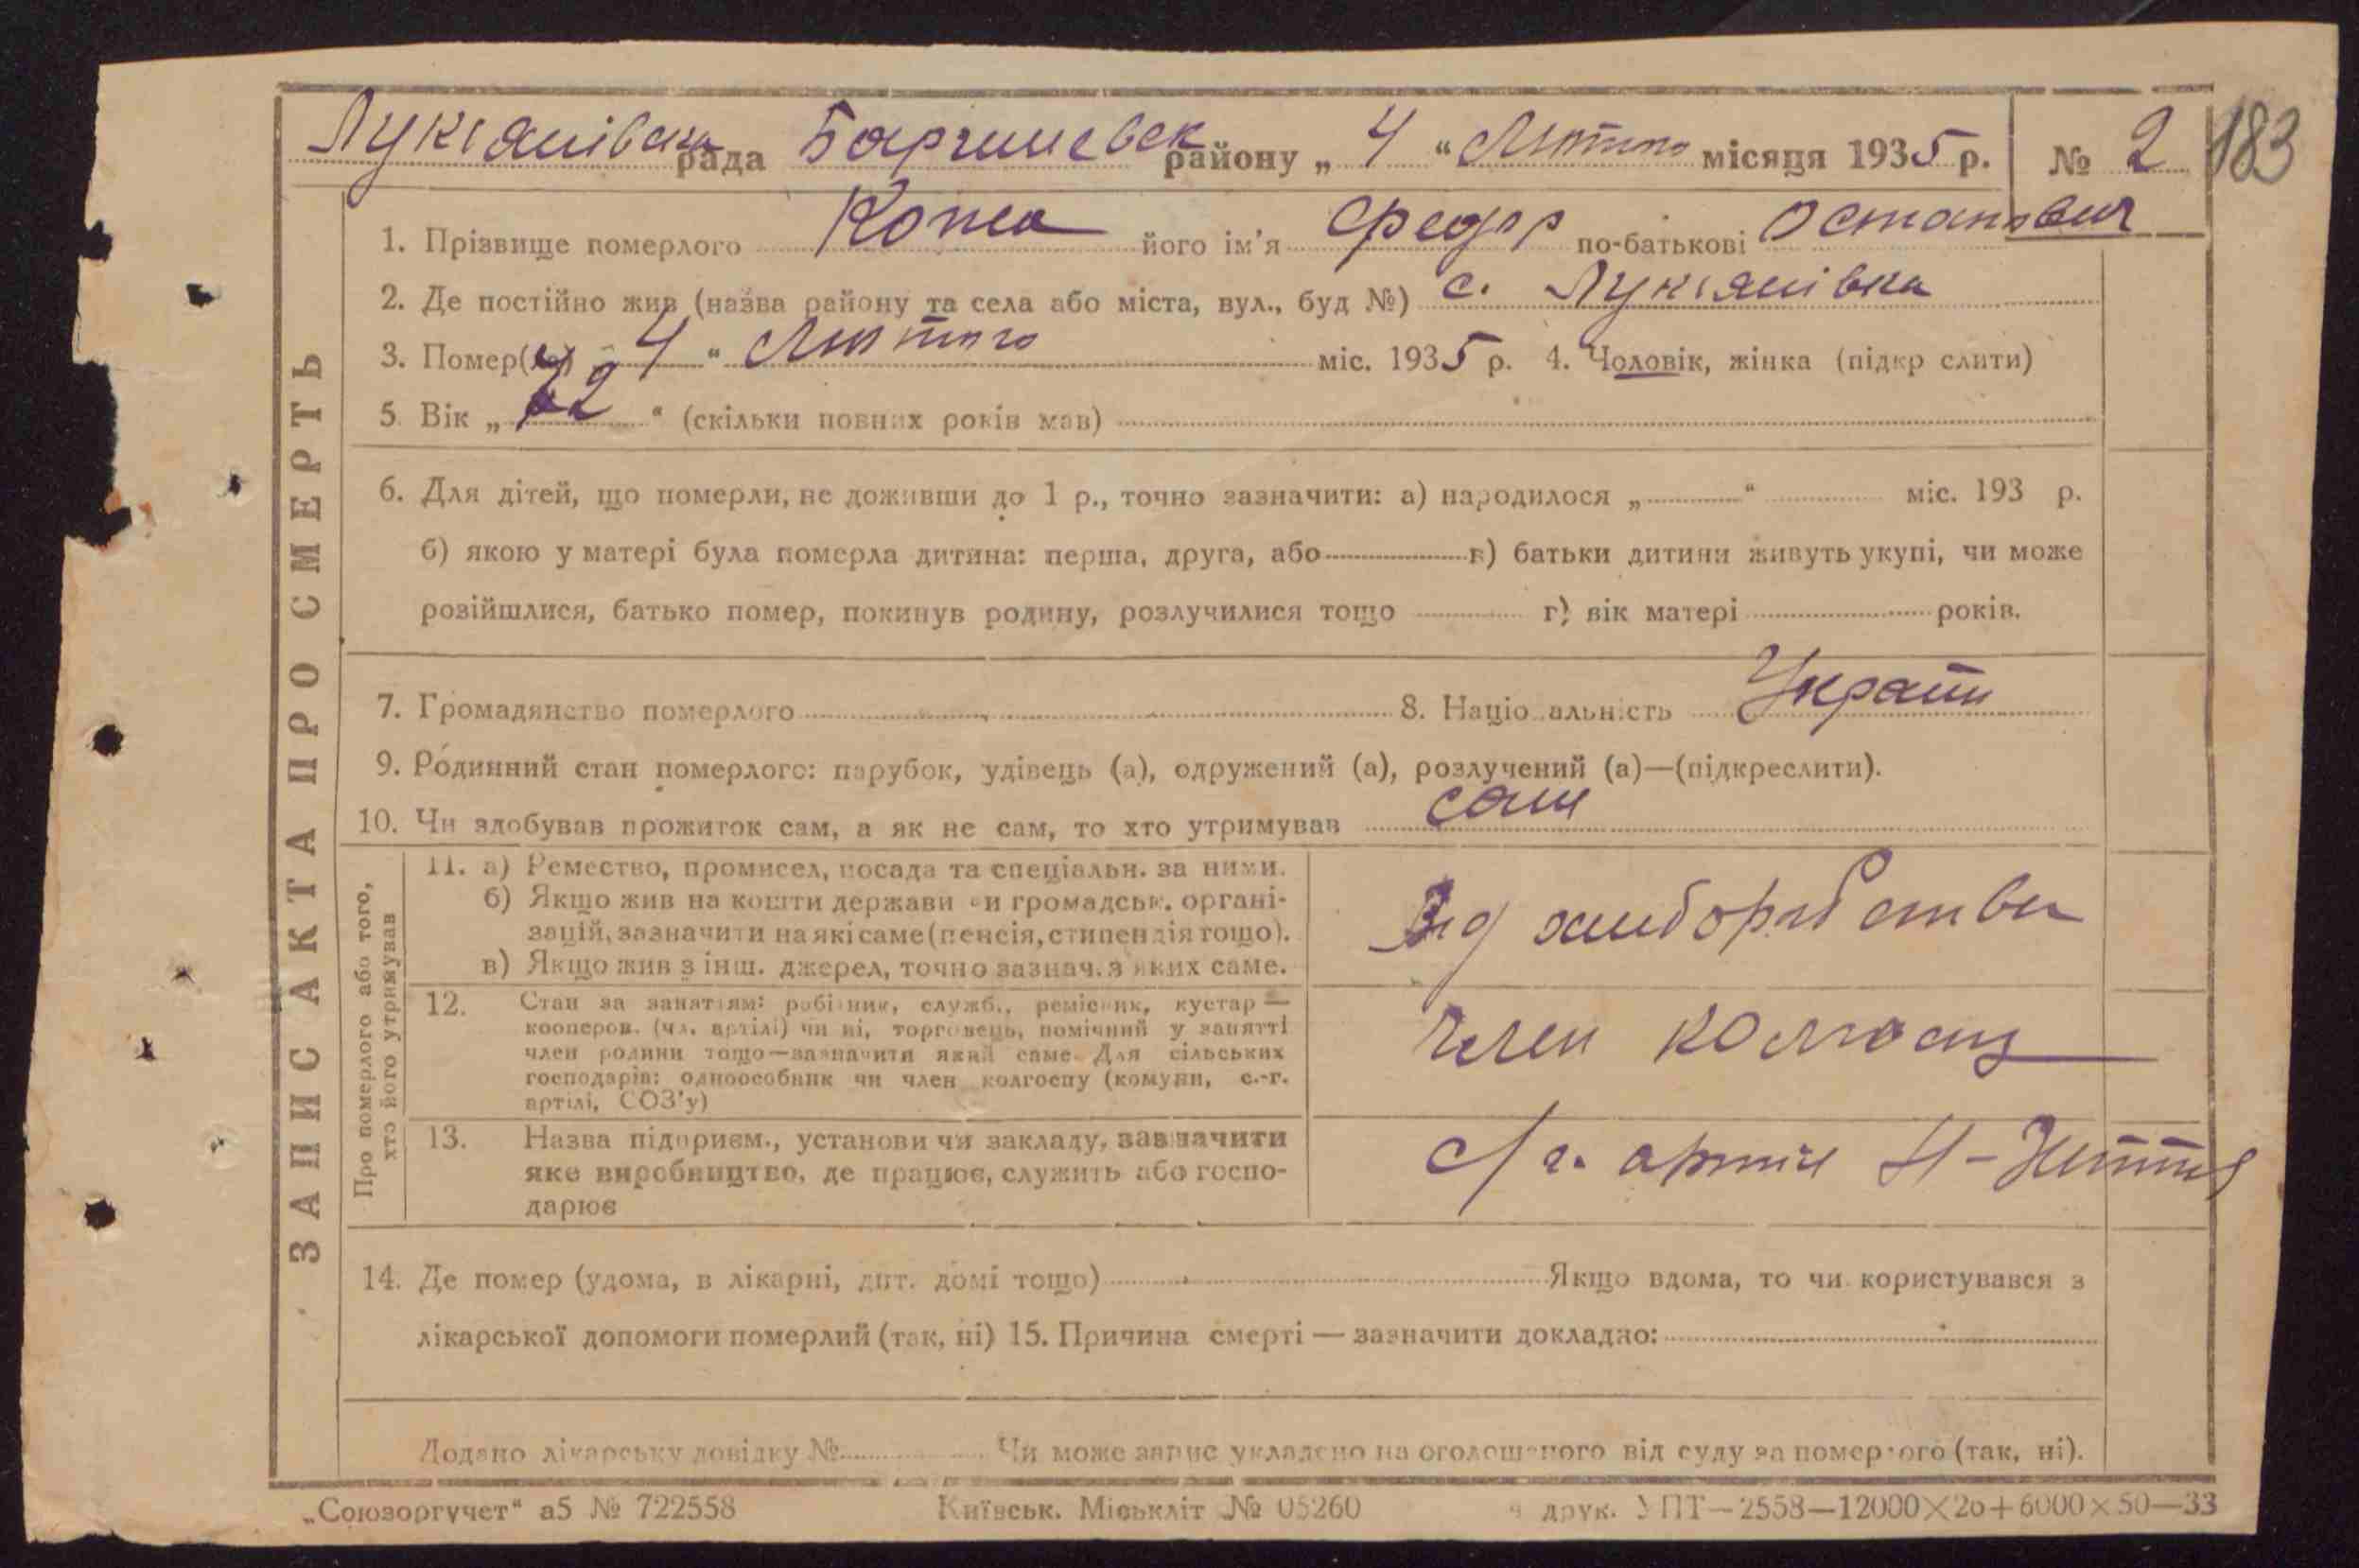 Лукіянівська рада Баришевськ району „ 4 “ Лютого місяця 1935 р. № 2 183
ЗАПИС АКТА ПРО СМЕРТЬ
1. Прізвище померлого його ім'я Федор по-батькові Остапович
2. Де постійно жив (назва району та села або міста, вул., буд №) с. Лукіянівка
3. Помер(ла) „ 4 “ Лютого міс. 1935 р. 4. Чоловік, жінка (підкр слити)
5. Вік „ “ (скільки повних років мав)
6. Для дітей, що померли, не доживши до 1 р., точно зазначити: а) народилося „ “ міс. 193 р.
б) якою у матері була померла дитина: перша, друга, або в) батьки дитини живуть укупі, чи може
розійшлися, батько помер, покинув родину, розлучилися тощо г) вік матері років.
7. Громадянство померлого 8. Націо альність Україн
9. Родинний стан померлого: парубок, удівець (а), одружений (а), розлучений (а)—(підкреслити).
10. Чи здобував прожиток сам, а як не сам, то хто утримував сам
Про померлого або того,
хто його утримував
11. а) Ремество, промисел, посада та спеціальн. за ними.
б) Якщо жив на кошти держави чи громадськ. органі-
зацій, зазначити на які саме (пенсія, стипендія тощо).
в) Якщо жив з інш. джерел, точно зазнач. з яких саме.
Від хліборобства
12. Стан за заняттям: робітник, служб., ремісник, кустар —
кооперов. (чл. артілі) чи ні, торговець, помічний у занятті
член родини тощо—зазначити який саме. Для сільських
господарів: одноособник чи член колгоспу (комуни, с.-г.
артілі, СОЗ'у)
Член колгоспу
13. Назва підприєм., установи чи закладу, зазначити
яке виробництво, де працює, служить або госпо-
дарює
с/г. артіл Н-Життя
14. Де помер (удома, в лікарні, дит. домі тощо) Якщо вдома, то чи користувався з
лікарської допомоги померлий (так, ні) 15. Причина смерті — зазначити докладно:
Додано лікарську довідку № Чи може запис укладено на оголошеного від суду за померлого (так, ні).
„Союзоргучет“ а5 № 722558 Київськ. Міськліт № 05260 друк. УПТ—2558—12000×20+6000×50—33